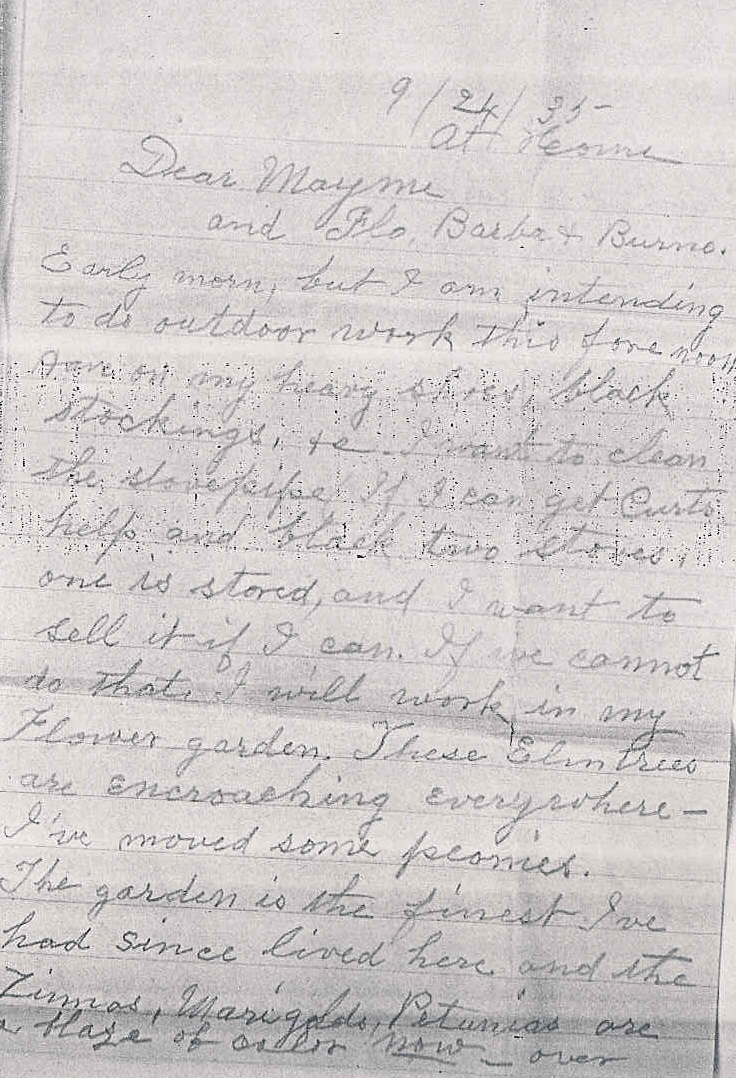 9/24/35
At Home
Dear Mayme
and Flo, Barba & Burno.
Early morn, but I am intending
to do outdoor work this fore noon
on my heavy shoes, black
stockings, &c. I want to clean
the stovepipe if I can get Curts
help and black two stoves,
one is stored, and I want to
sell it if I can. If we cannot
do that, I will work in my
Flower garden. These Elm trees
are encroaching everywhere –
I've moved some peonies.
The garden is the finest I've
had since lived here and the
Zinnas, Marigolds, Petunias are
a blaze of color now – over